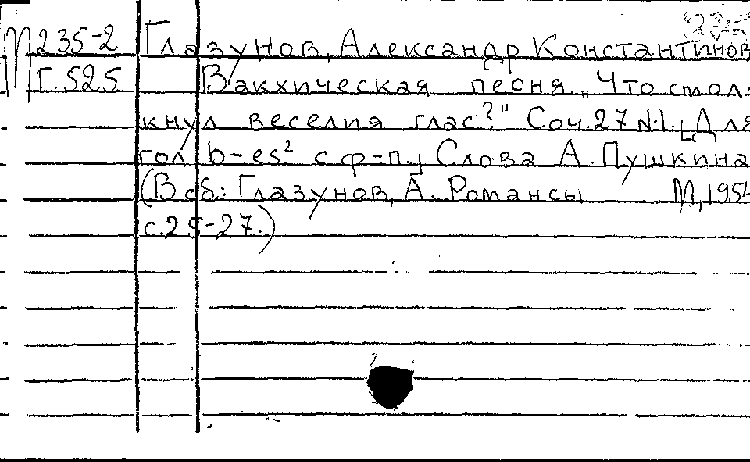 М235-2 Глазунов, Александр Константинов
Г.525 Вакхическая песня „Что смол-
кнул веселия глас?" Соч.27 №1. [Для
гол. b-es² с ф-п.] Слова А. Пушкина
(В сб: Глазунов, А. Романсы М, 1954
с.25-27.)